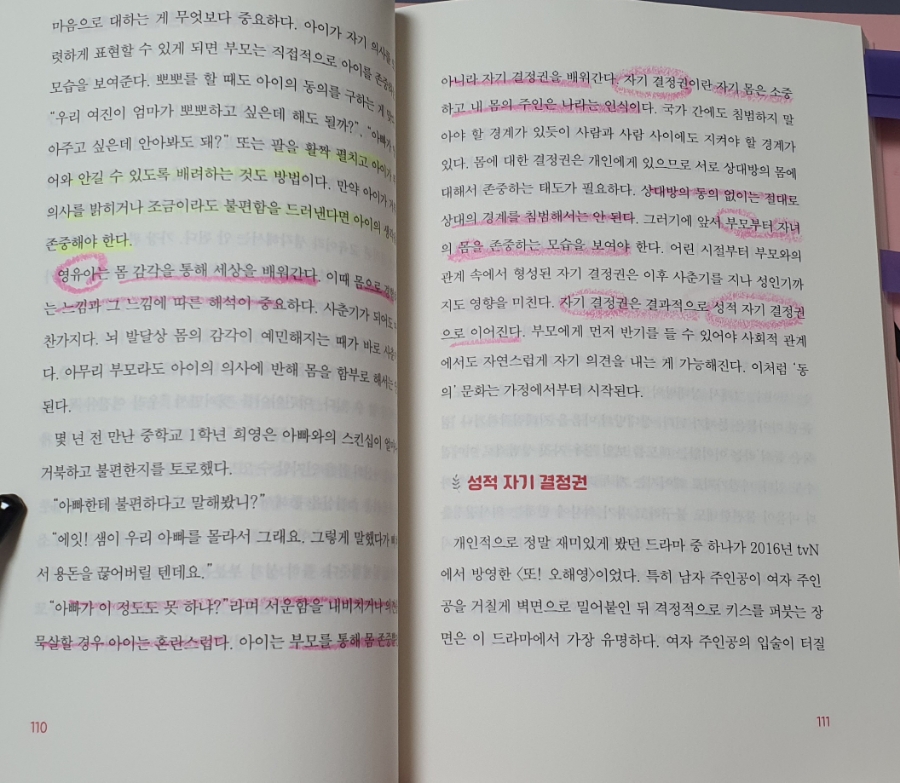 마음으로 대하는 게 무엇보다 중요하다. 아이가 자기 의사를
렷하게 표현할 수 있게 되면 부모는 직접적으로 아이를 존중하
모습을 보여준다. 뽀뽀를 할 때도 아이의 동의를 구하는 게
“우리 여진이 엄마가 뽀뽀하고 싶은데 해도 될까?”, “아빠가
아주고 싶은데 안아봐도 돼?” 또는 팔을 활짝 펼치고 아이가
어와 안길 수 있도록 배려하는 것도 방법이다. 만약 아이가
의사를 밝히거나 조금이라도 불편함을 드러낸다면 아이의
존중해야 한다.
영유아는 몸 감각을 통해 세상을 배워간다. 이때 몸으로
는 느낌과 그 느낌에 따른 해석이 중요하다. 사춘기가 되어도
찬가지다. 뇌 발달상 몸의 감각이 예민해지는 때가 바로
다. 아무리 부모라도 아이의 의사에 반해 몸을 함부로 해서는
된다.
몇 년 전 만난 중학교 1학년 희영은 아빠와의 스킨십이
거북하고 불편한지를 토로했다.
“아빠한테 불편하다고 말해봤니?”
“에잇! 샘이 우리 아빠를 몰라서 그래요. 그렇게 말했다가
서 용돈을 끊어버릴 텐데요.”
“아빠가 이 정도도 못 하냐?”라며 서운함을 내비치거나
묵살할 경우 아이는 혼란스럽다. 아이는 부모를 통해 몸 존중
110
아니라 자기 결정권을 배워간다. 자기 결정권이란 자기 몸은 소중
하고 내 몸의 주인은 나라는 인식이다. 국가 간에도 침범하지 말
아야 할 경계가 있듯이 사람과 사람 사이에도 지켜야 할 경계가
있다. 몸에 대한 결정권은 개인에게 있으므로 서로 상대방의 몸에
대해서 존중하는 태도가 필요하다. 상대방의 동의 없이는 절대로
상대의 경계를 침범해서는 안 된다. 그러기에 앞서 부모부터 자녀
의 몸을 존중하는 모습을 보여야 한다. 어린 시절부터 부모와의
관계 속에서 형성된 자기 결정권은 이후 사춘기를 지나 성인기까
지도 영향을 미친다. 자기 결정권은 결과적으로 성적 자기 결정권
으로 이어진다. 부모에게 먼저 반기를 들 수 있어야 사회적 관계
에서도 자연스럽게 자기 의견을 내는 게 가능해진다. 이처럼 ‘동
의’ 문화는 가정에서부터 시작된다.
성적 자기 결정권
개인적으로 정말 재미있게 봤던 드라마 중 하나가 2016년 tvN
에서 방영한 〈또! 오해영〉이었다. 특히 남자 주인공이 여자 주인
공을 거칠게 벽면으로 밀어붙인 뒤 격정적으로 키스를 퍼붓는 장
면은 이 드라마에서 가장 유명하다. 여자 주인공의 입술이 터질
111